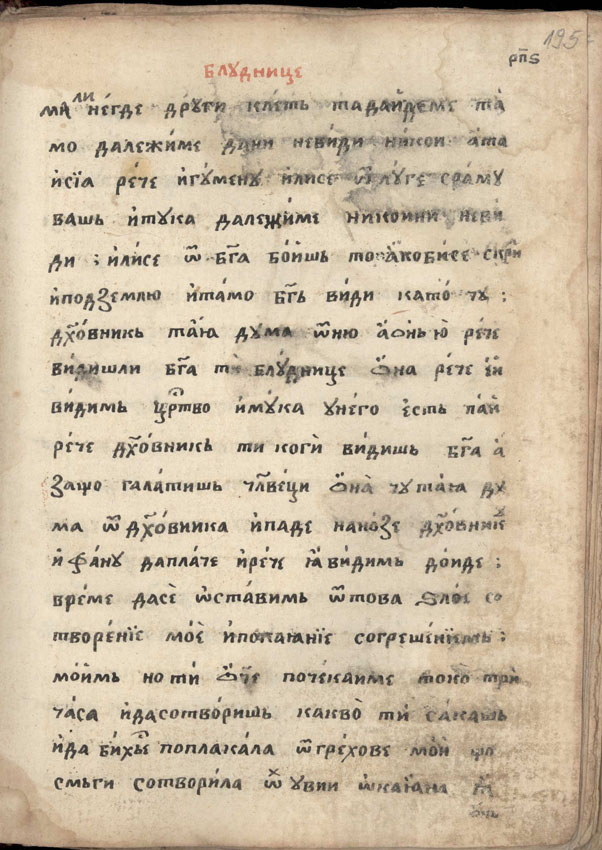 195
рп̅ѕ
блꙋднице
маⷧ҇ли нѐгде дрꙋ́ги клѐть та даи́деме та̀
мо далежи́ме дани неви́ди ни́кои а҆та
и҆сїа рѐче и҆гꙋ́менꙋ и҆лисе ѿ лꙋ́ге сра́мꙋ
вашь и҆тꙋка далежи́ме никои́ни неви
ди ; и҆ли́се ѿ бг҃а бои́шь то а҆кобисе скрⷩ҇и
и҆подземлю и҆та́мо бг҃ь ви́ди като̀ чꙋ ;
дх҃о́вникь таꙗ дꙋма ѿ ню а҆ ѻньꙗ рѐче
ви́дишли бг҃а ти блꙋ́днице ѻ҆на рѐче
ви́димь црⷭ҇тво и҆мꙋ́ка ꙋнего е҆сть паи
рѐче дх҃о́вникь ти коги̇̀ ви́дишь бг҃а а҆
защо гала́тишь чл҃веци ѻ҆на̀ чꙋ таꙗ дꙋ
ма ѿ дх҃о́вника и҆паде нано́зе дх҃о́вникꙋ
и҆ фа́нꙋ даплаче и҆рѐче ꙗ҆ ви́димь до́иде ;
врѐме дасѐ ѡ҆ста́вимь ѿ това ѕло́е со
творѐнїе моѐ и҆пока́ꙗнїе согрешѐнїемь ;
мои́мь но ти́ ѻч҃е почѐкаиме токо̀ три
ча́са и҆да сотво́ришь какво̀ ти́ са́кашь
и҆да би́хь поплака́ла ѿ грѐхове мои́
смьги сотвори́ла ѿ ꙋвии ѡ҆каꙗ́на